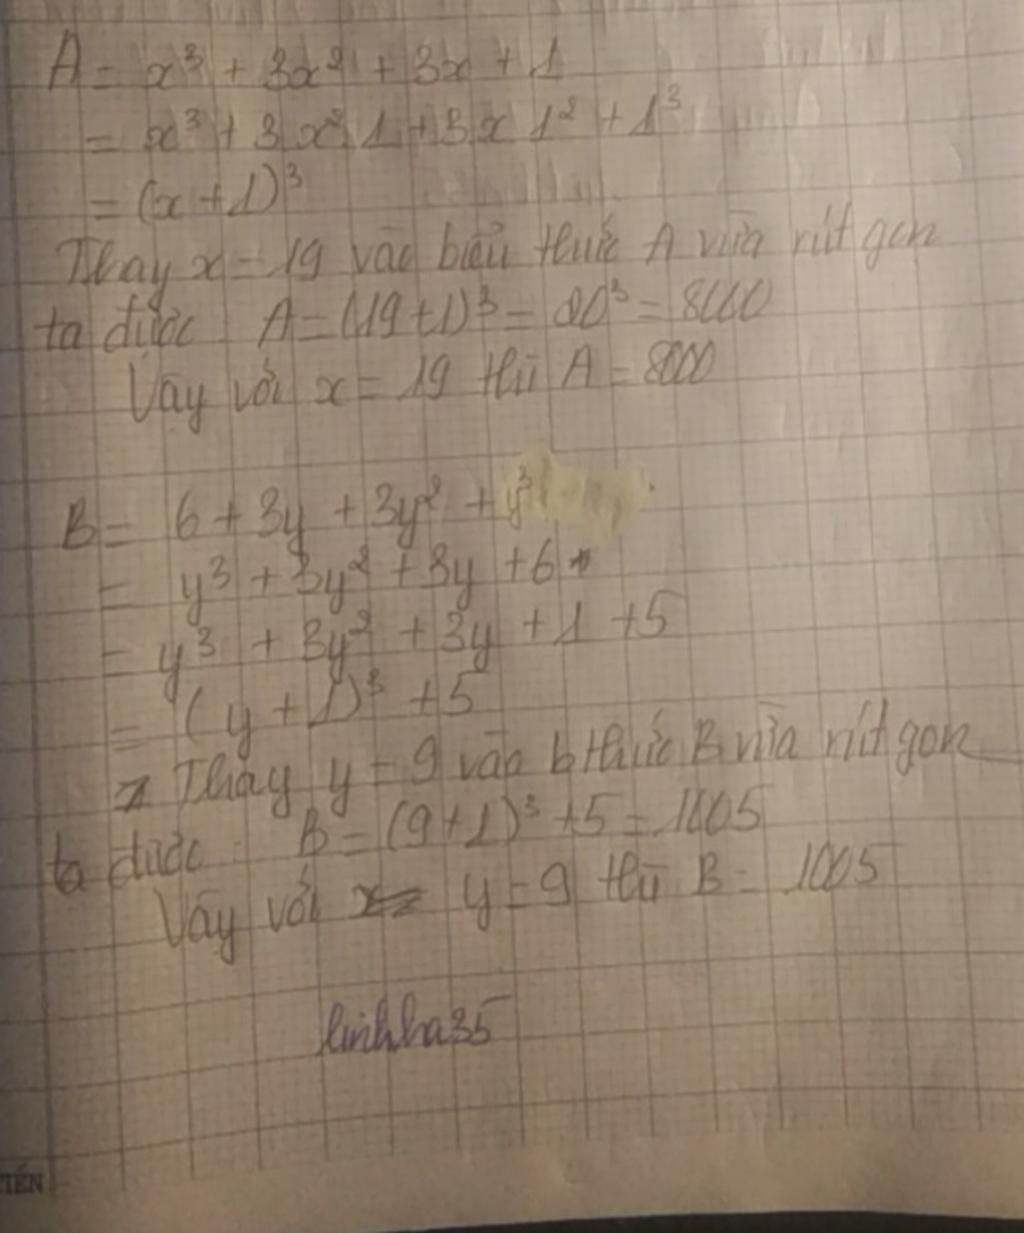 A = x³ + 3x² + 3x + 1
= x³ + 3 x² 1 + 3 x 1² + 1³
= (x + 1)³
Thay x = 19 vào biểu thức A vừa rút gọn
ta được A = (19 + 1)³ = 20³ = 8000
Vậy với x = 19 thì A = 8000
B = 6 + 3y + 3y² + y³
= y³ + 3y² + 3y + 6
= y³ + 3y² + 3y + 1 + 5
= (y + 1)³ + 5
Thay y = 9 vào b thức B vừa rút gọn
ta được B = (9 + 1)³ + 5 = 1005
Vậy với y = 9 thì B = 1005
linhha35
TIẾN